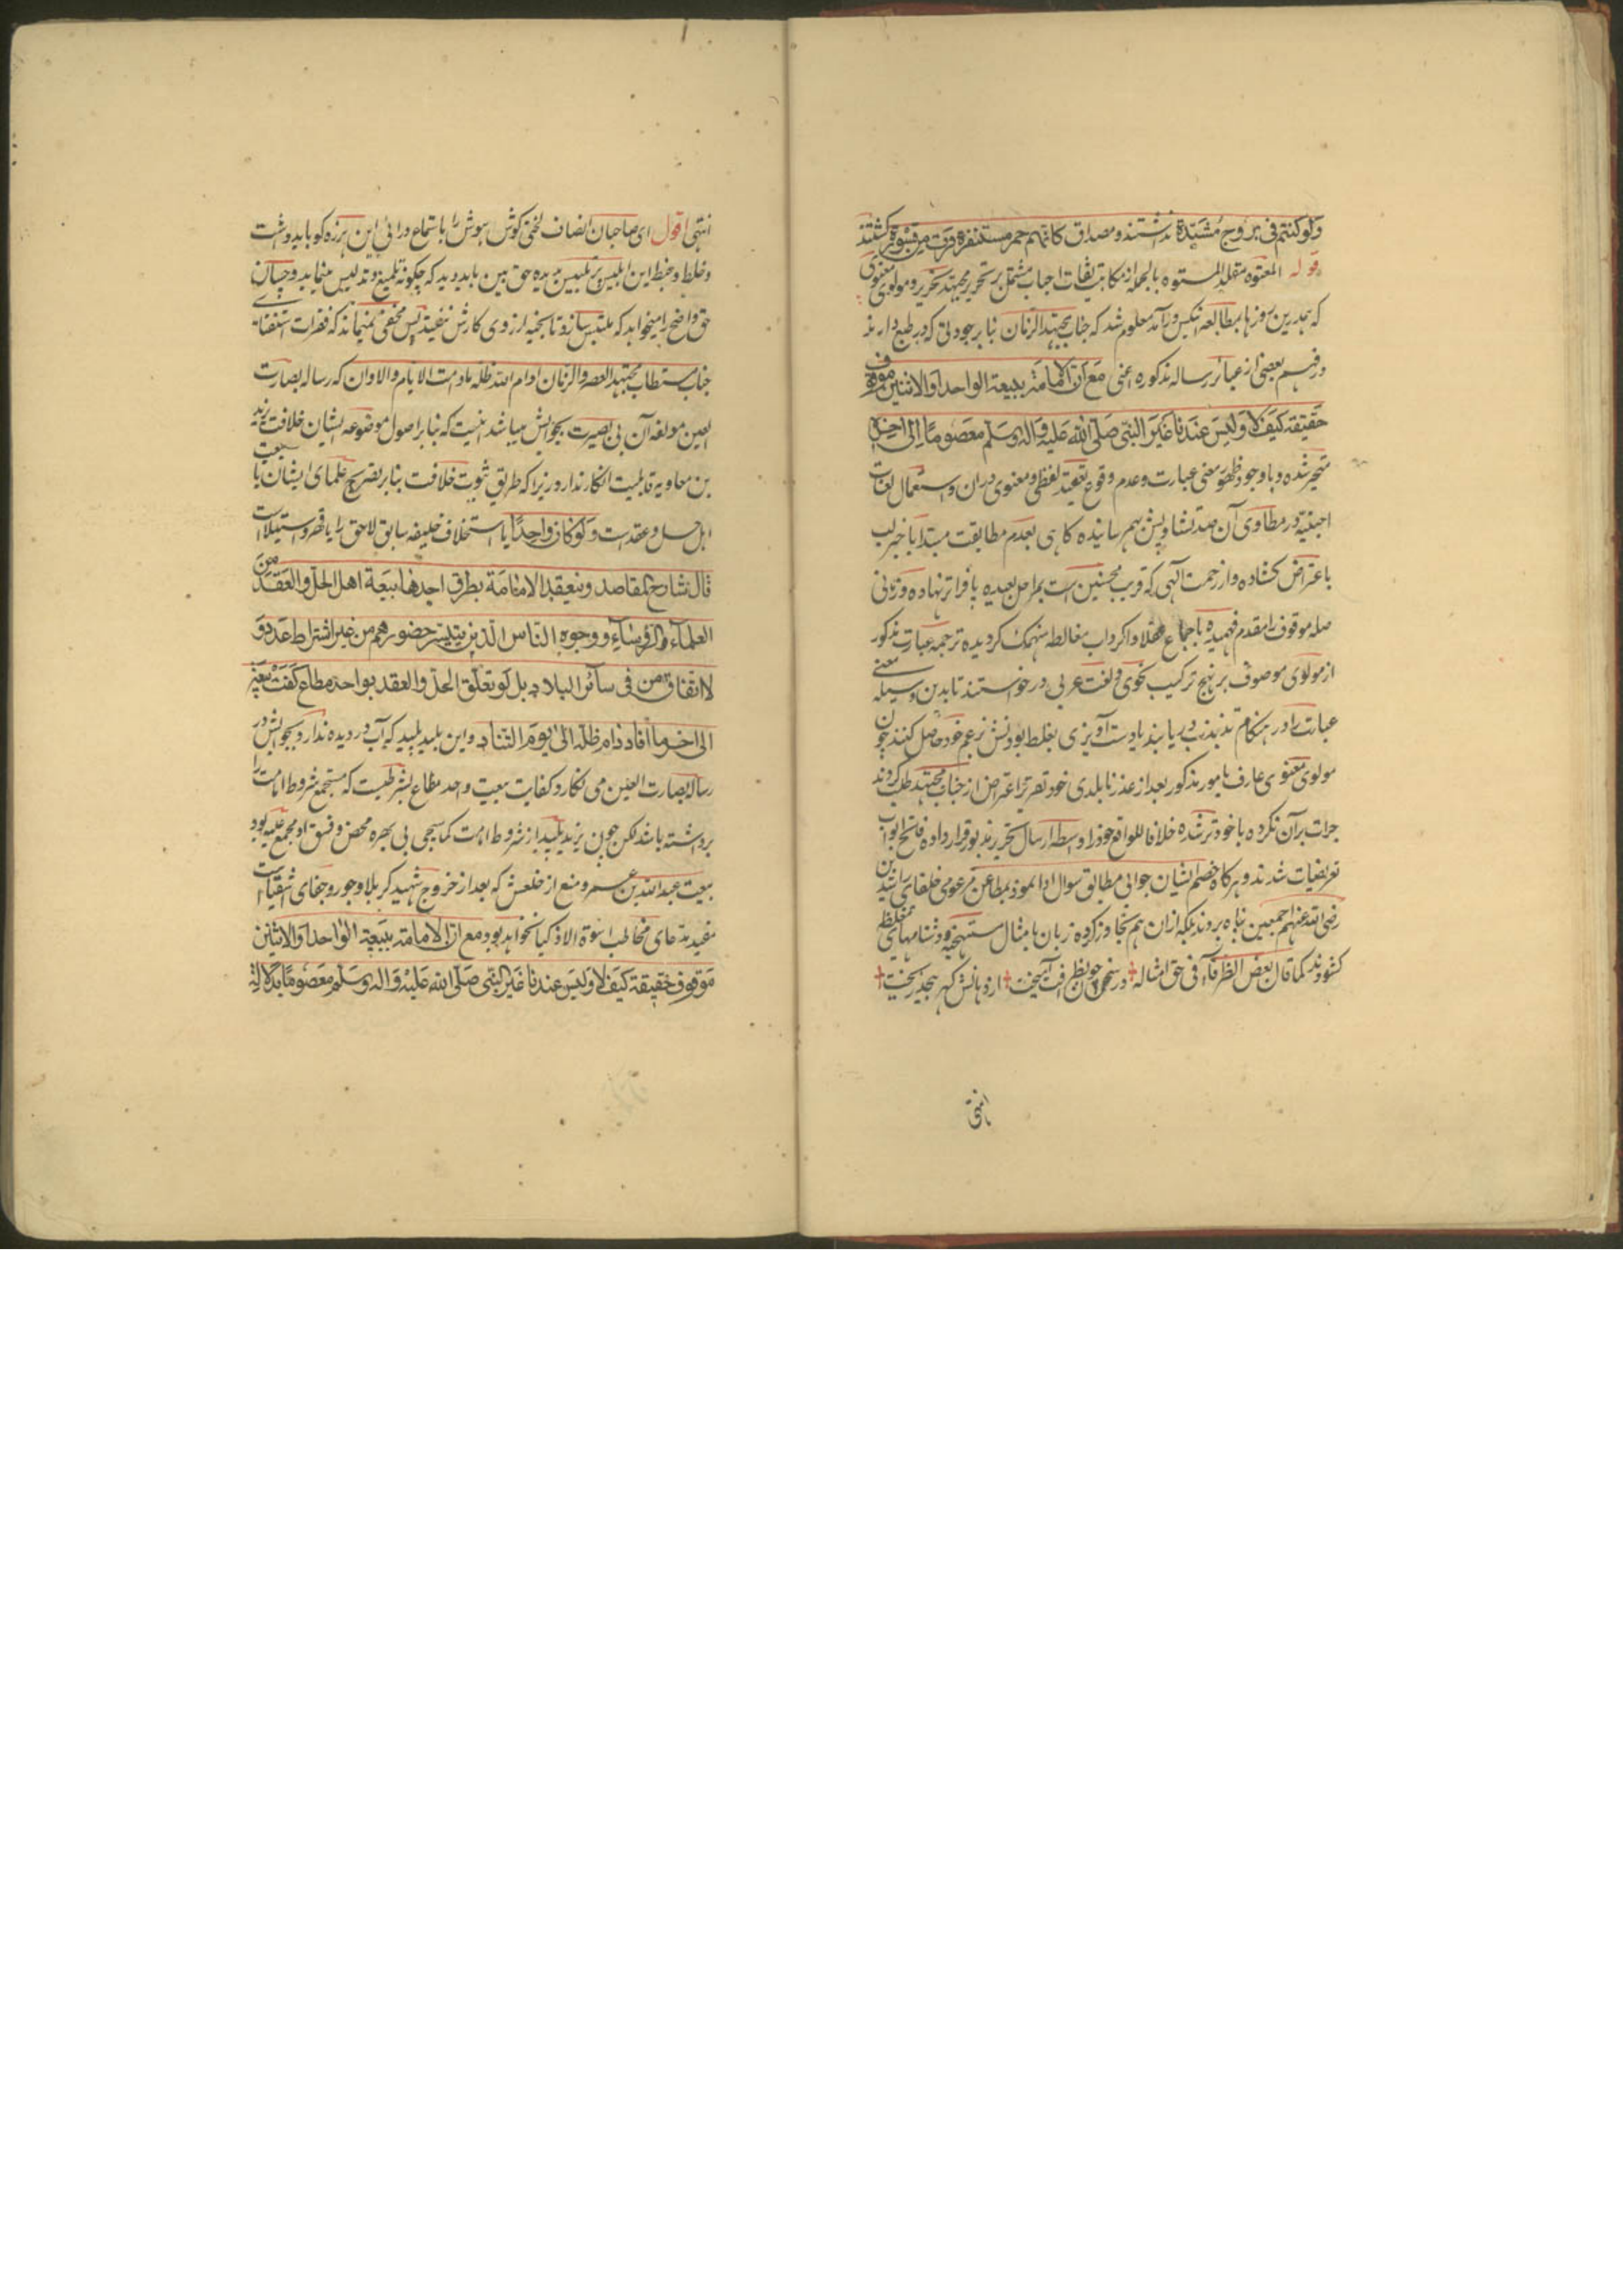 ولو کنتم فی بروج مشیدة نداشتند و مصداق کانهم حمر مستنفرة فرت من قسورة کشتند
قوله المعتوه مقلد المستوه بالجمله از مکاتیب اجاب مشتمل بر تحریر مجتهد نحریر و مولوی معنوی
که بهدرین روزها بمطالعه انیکس در آمد معلوم شد که جناب مجتهد الزمان بنا بر جودتی که در طبع دارند
در فهم بعضی از عبائر رساله مذکوره اعنی مع ان الامامة ببیعة الواحد او الاثنین موقوف
حقیقة کیف لا ولیس عندنا غیر النبی صلی الله علیه واله وسلم معصوما الی اخره
متحیر شده و باوجود ظهور معنی عبارت و عدم وقوع تعقید لفظی و معنوی دران و استعمال لغات
اجنبیة در مطاوی آن صد تشاویش بهم رسانیده کاهی بعدم مطابقت مبتدا با خبر لب
باعتراض کشاده و از رحمت الهی که قریب محسنین است بمراحل بعیده پا فراتر نهاده و زمانی
صله موقوف را مقدم فهمیده باجماع عقلا در کرداب مغالطه منهمک کردیده ترجمه عبارت مذکور
از مولوی موصوف بر نهج ترکیب نحوی و لغت عربی در خواستند تا بدین وسیله معنی
عبارت را در هنکام تذبذب دریابند یا دست آویزی بغلط بودنش بزعم خود حاصل کنند چون
مولوی معنوی عارف بامور مذکور بعد از عذر نابلدی خود تقریر اعتراض از جناب مجتهد طلب کردند
جرات بران نکرده با خود تر شده خلافا للواقع خود را واسطه ارسال تحریر مزبور قرار داده فاتح ابواب
تعریضیات شدند و هر کاه خصم ایشان جوابی مطابق سوال ادا نمود بمطاعن مزعومی خلفای راشدین
رضی الله عنهم اجمعین پناه بردند بلکه ازان هم تجاوز کرده زبان بامثال مستهجنه و دشنامهای مغلظه
کشودند کما قال بعض الظرفاء فی حق امثاله در سخن چون بظرافت آمیخت از دهانش کهر بجد میریخت
انتهی
انتهی اقول ای صاحبان انصاف لختی کوش هوش را باستماع درائی این هرزه کو باید داشت
و خلط و خبط این ابلیس پر تلبیس بدیده حق بین باید دید که چکونه تلمیع و تدلیس مینماید و چسان
حق واضح را میخواهد که ملتبس سازد تا بخیه از روی کارش نیفتد پس مخفی نمیماند که فقرات استفتای
جناب مستطاب مجتهد العصر والزمان ادام الله ظله مادامت الایام والاوان که رساله بصارت
العین مولفه آن بی بصیرت بجوابش میباشد اینست که بنا بر اصول موضوعه ایشان خلافت یزید
بن معاویه قابلیت انکار ندارد زیرا که طریق ثبوت خلافت بنا بر تصریح علمای ایشان یا بیعت
اهل حل و عقدست ولو کان واحدا یا استخلاف خلیفه سابق لاحق را یا قهر و استیلاست
قال شارح المقاصد وینعقد الامامة بطرق احدها بیعة اهل الحل والعقد من
العلماء والرؤساء ووجوه الناس الذین یتیسر حضورهم من غیر اشتراط عدد و
لا اتفاق من فی سائر البلاد بل لو تعلق الحل والعقد بواحد مطاع کفت بیعته
الی اخر ما افاد دام ظله الی یوم التناد و این بلید پلید که آب در دیده ندارد بجوابش در
رساله بصارت العین می نکارد کفایت بیعت واحد مطاع بشرطیست که مستجمع شروط امامت را
بر داشته باشد لکن چون یزید پلید از شروط امامت کما سیجی بی بهره محض و فسق او مجمع علیه بود
بیعت عبد الله بن عمر و منع از خلعش که بعد از خروج شهید کربلا و جور و جفای اشقیاست
مفید مدعای مخاطب اسوة الاذکیا نخواهد بود مع ان الامامة ببیعة الواحد او الاثنین
موقوف حقیقة کیف لا ولیس عندنا غیر النبی صلی الله علیه واله وسلم معصوما بدلالة